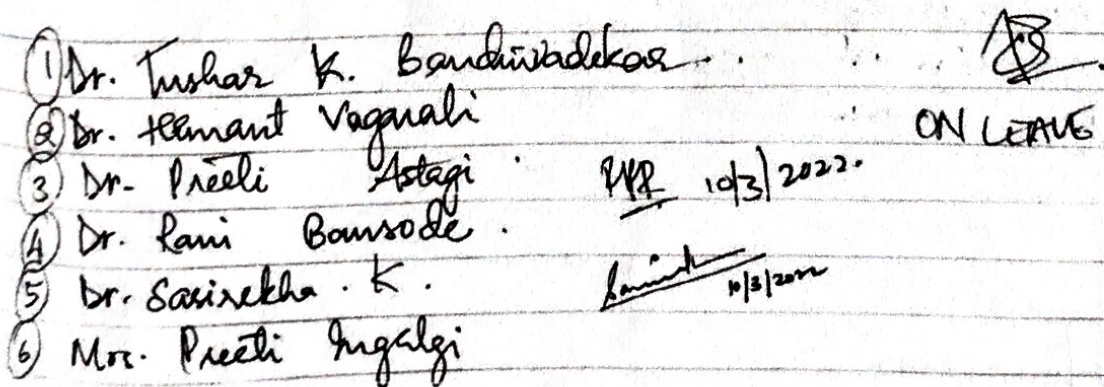 ① Dr. Tushar K. Bandiwadekar
② Dr. Hemant Vagarali ON LEAVE
③ Dr. Preeti Astagi 10/3/2022.
④ Dr. Rani Bansode.
⑤ Dr. Sasirekha. K. 10/3/2022
⑥ Mrs. Preeti Ingalgi